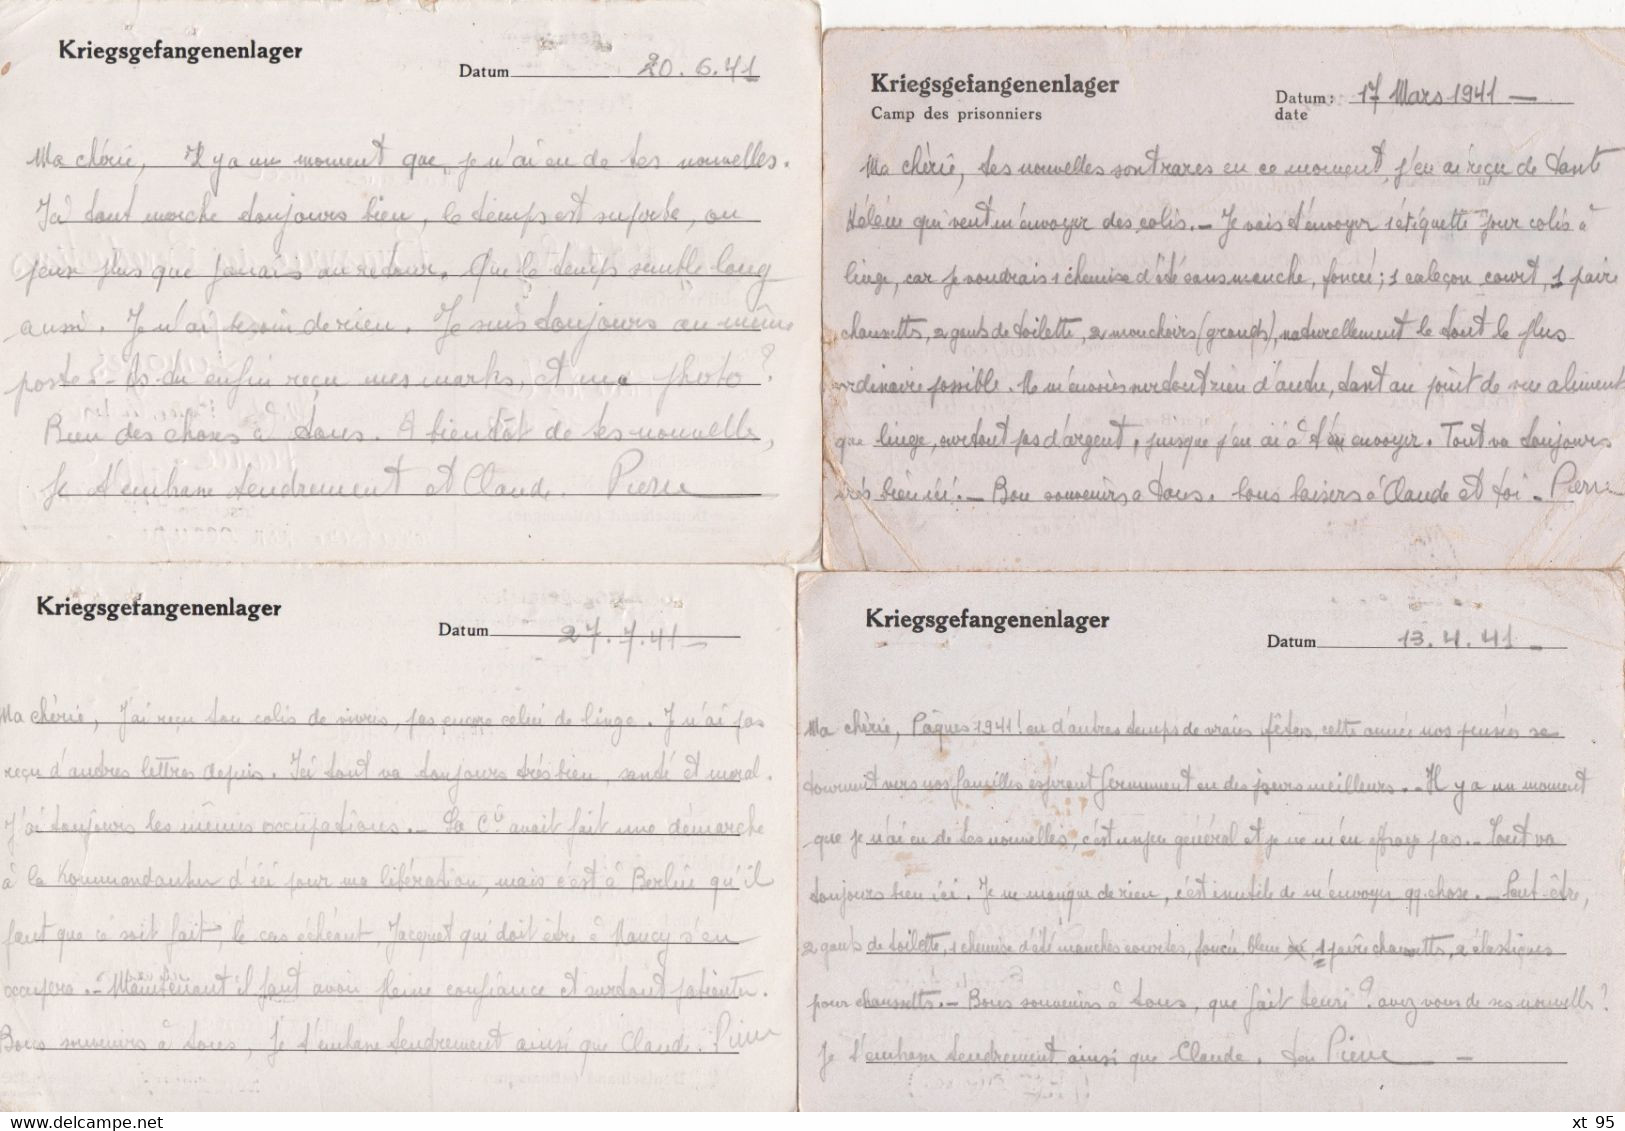 Kriegsgefangenenlager
Datum 20.6.41
Ma chérie, Il y a un moment que je n'ai eu de tes nouvelles.
Ici tout marche toujours bien, le temps est superbe, on
pense plus que jamais au retour. Que le temps semble long
aussi. Je n'ai besoin de rien. Je suis toujours au même
poste - As-tu enfin reçu mes marks, et ma photo?
Bien des choses à tous. A bientôt de tes nouvelles,
Je t'embrasse tendrement et Claude. Pierre
Kriegsgefangenenlager
Camp des prisonniers
Datum: 17 Mars 1941 -
date
Ma chèrie, tes nouvelles sont rares en ce moment, j'en ai reçu de tante
Hélène qui veut m'envoyer des colis. - Je vais t'envoyer 1 étiquette pour colis à
linge, car je voudrais 1 chemise d'été sans manche, foncée; 1 caleçon court, 1 paire
chaussetts, 2 gants de toilette, 2 mouchoirs (grands), naturellement le tout le plus
ordinaire possible. Ne m'envoies surtout rien d'autre, tant au point de vue aliment
que linge, surtout pas d'argent, puisque j'en ai à t'en envoyer. Tout va toujours
très bien ici. - Bon souvenirs à tous. Bons baisers à Claude et toi - Pierre
Kriegsgefangenenlager
Datum 27.7.41 -
Ma chèrie, J'ai reçu ton colis de vivres, pas encore celui de linge. Je n'ai pas
reçu d'autres lettres depuis. Ici tout va toujours très bien, santé et moral.
J'ai toujours les mêmes occupations. - La Cie avait fait une démarche
à la Kommandantur d'ici pour ma libération, mais c'est à Berlin qu'il
faut que ce soit fait, le cas échéant, Jacquet qui doit être à Nancy s'en
occupera. - Maintenant il faut avoir pleine confiance et surtout patienter.
Bons souvenirs à tous, Je t'embrasse tendrement ainsi que Claude. Pierre
Kriegsgefangenenlager
Datum 13.4.41 -
Ma chèrie, Pâques 1941! en d'autres temps de vraies fêtes, cette année nos pensées se
tournent vers nos familles espérant fermement en des jours meilleurs. - Il y a un moment
que je n'ai eu de tes nouvelles, c'est un peu général et je ne m'en effraye pas. - Tout va
toujours bien ici. Je ne manque de rien, c'est inutile de m'envoyer qq. chose. - Peut-être,
2 gants de toilette, 1 chemise d'été manches courtes, foncée, bleue 1 paire chaussetts, 2 élastiques
pour chaussetts. - Bons souvenirs à tous, que fait Henri? avez vous de ses nouvells?
Je t'embrasse tendrement ainsi que Claude. ton Pierre -
xt 95